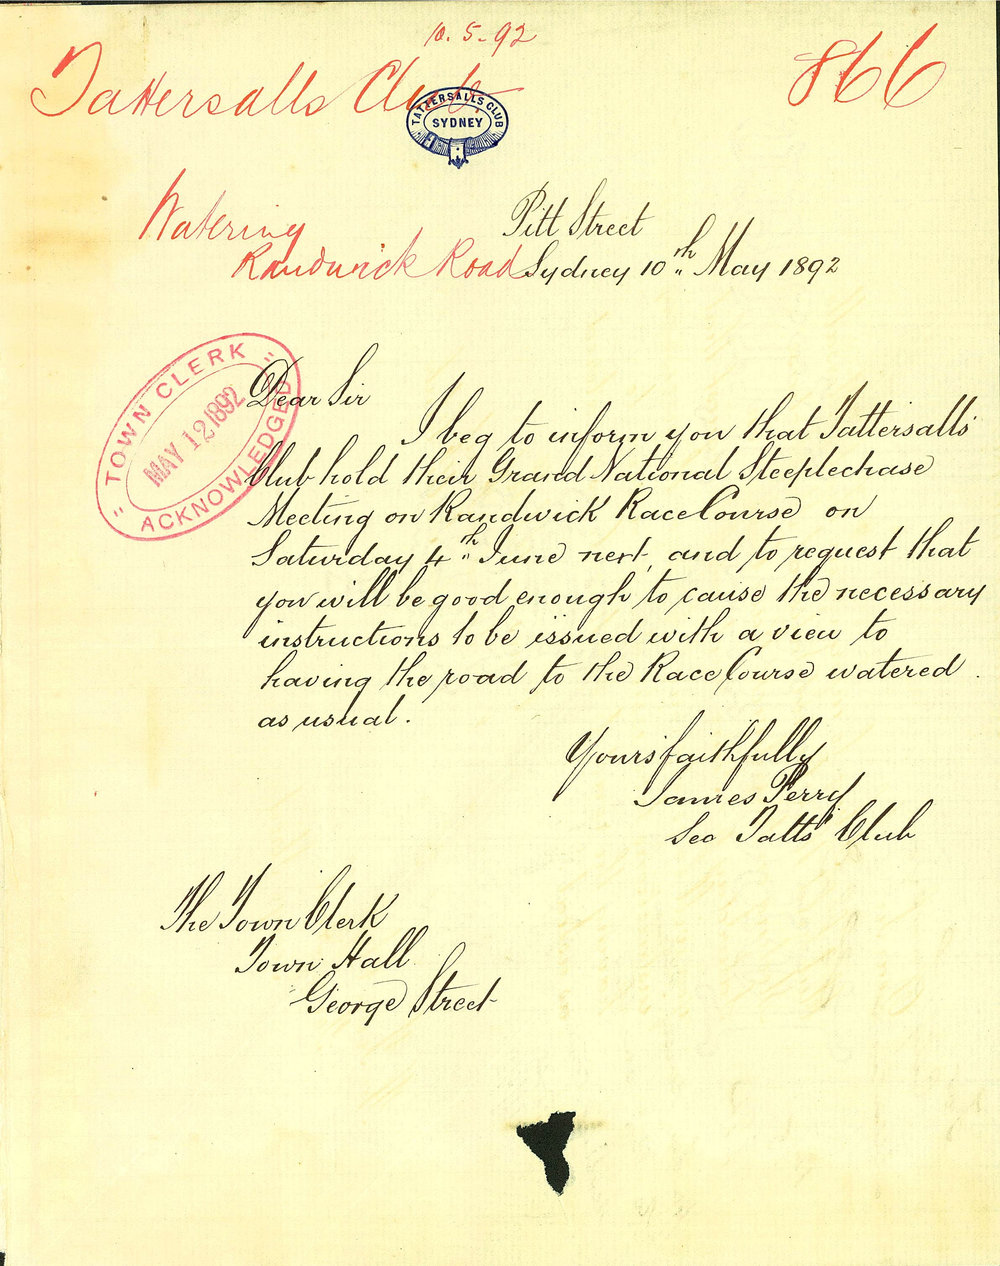 10.5.92
Tattersalls Club
866
TATTERSALLS CLUB
SYDNEY
Watering
Randwick Road
Pitt Street
Sydney 10th May 1892
" TOWN CLERK "
MAY 12 1892
ACKNOWLEDGED
Dear Sir
I beg to inform you that Tattersalls'
Club hold their Grand National Steeplechase
Meeting on Randwick Race Course on
Saturday 4th June next, and to request that
you will be good enough to cause the necessary
instructions to be issued with a view to
having the road to the Race Course watered
as usual.
Yours faithfully
James Perry
Sec Tatts' Club
The Town Clerk
Town Hall
George Street